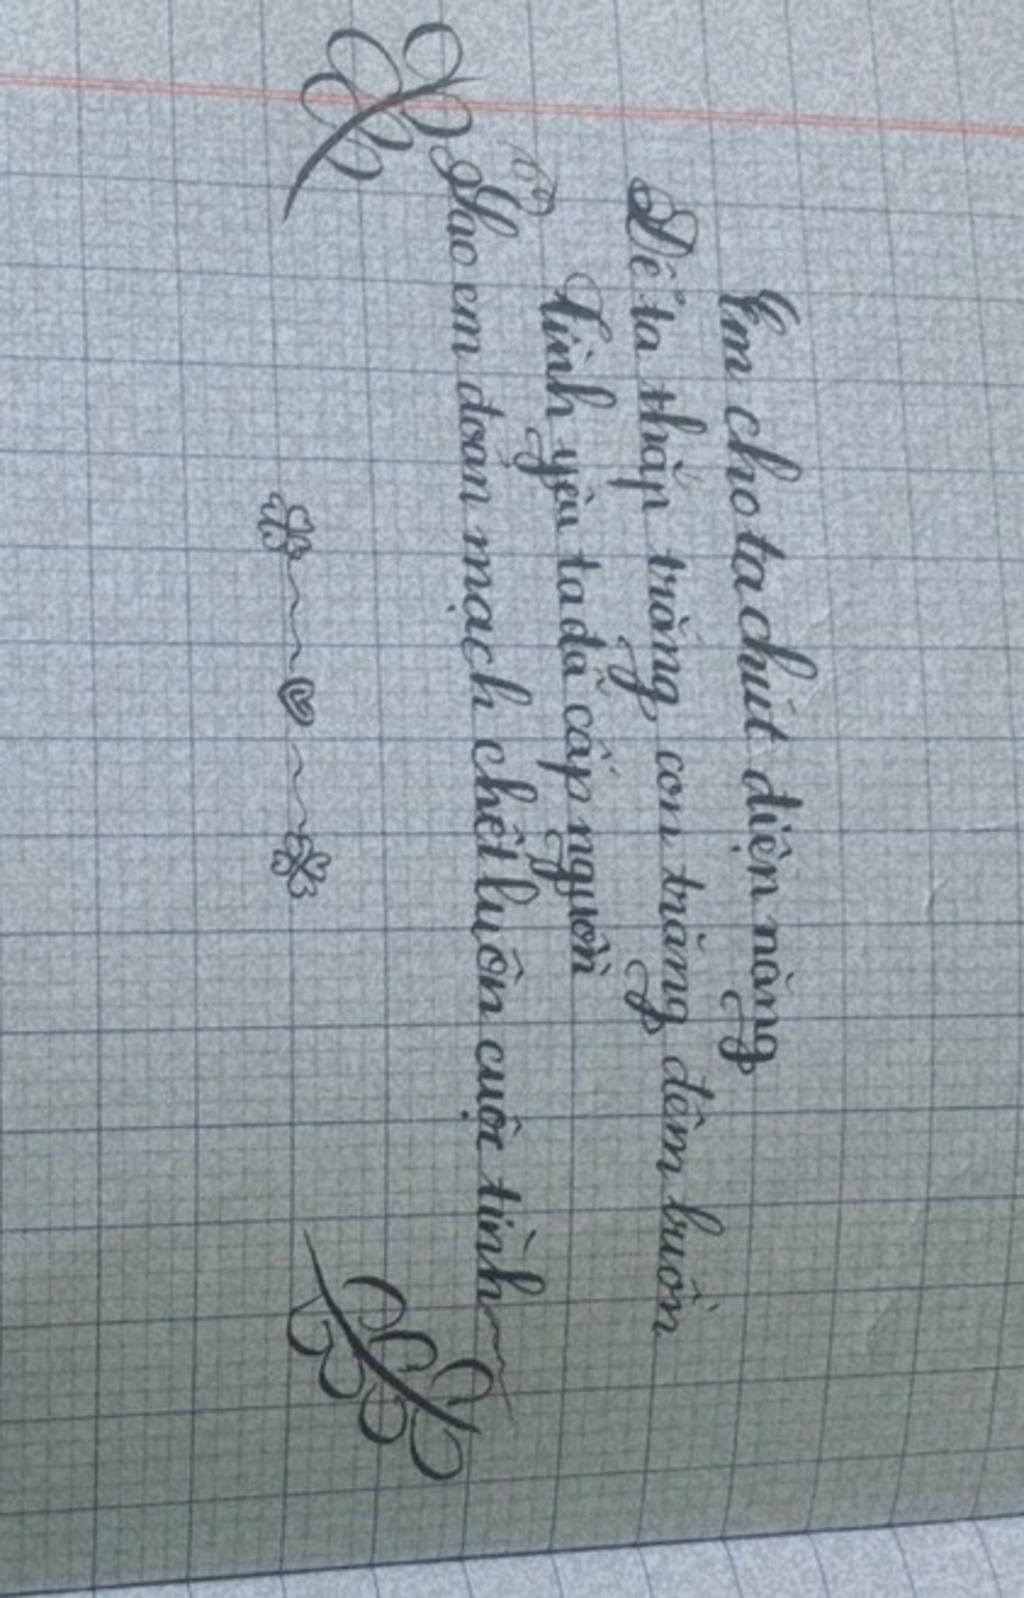 Em cho ta chút điện năng
Để ta thắp trắng con trăng đêm buồn
Tình yêu ta đã cấp nguồn
Sao em đoản mạch chết luôn cuộc tình